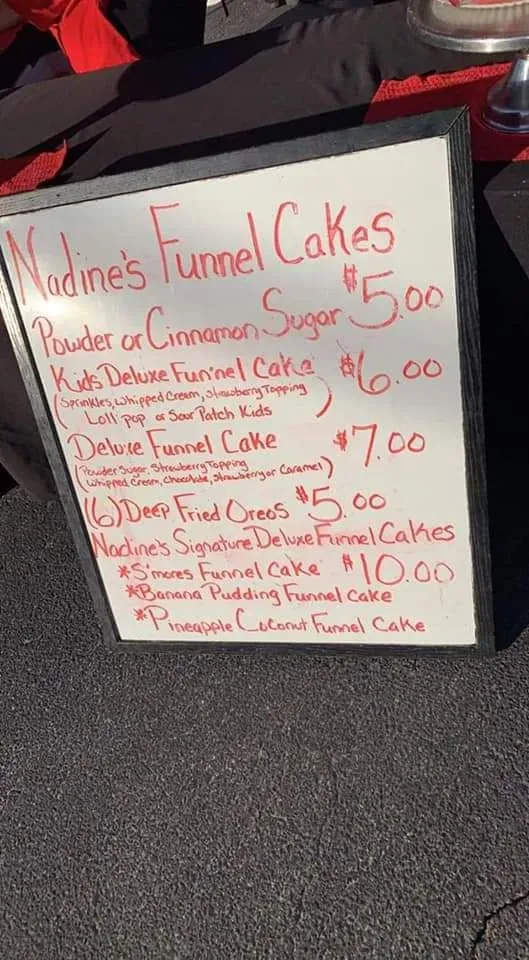 Nadine's Funnel Cakes
Powder or Cinnamon Sugar $5.00
Kids Deluxe Fun'nel Cake $6.00
(Sprinkles, Whipped Cream, Strawberry Topping
Lolli pop or Sour Patch Kids)
Deluxe Funnel Cake $7.00
(Powder Sugar, Strawberry Topping
Whipped Cream, Chocolate, Strawberry or Caramel)
(6) Deep Fried Oreos $5.00
Nadine's Signature Deluxe Funnel Cakes
*S'mores Funnel Cake $10.00
*Banana Pudding Funnel Cake
*Pineapple Coconut Funnel Cake